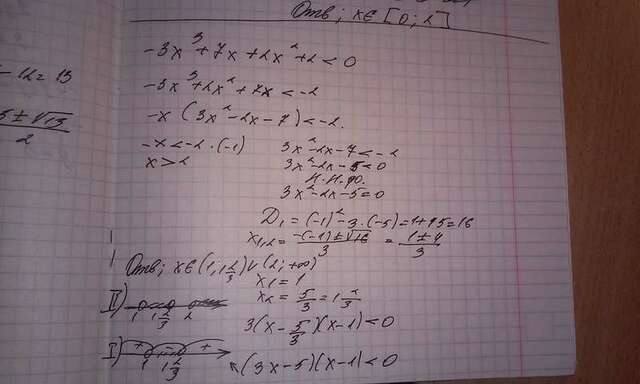 Отв; x∈[0;2]
-3x³+7x+2x²+2<0
-3x³+2x²+7x<-2
-x(3x²-2x-7)<-2.
-x<-2 ·(-1)
x>2
3x²-2x-7<-2
3x²-2x-5<0
3x²-2x-5=0
D₁=(-1)²-3·(-5)=1+15=16
x₁,₂=(-(-1)±√16)/3=(1±4)/3
Отв; x∈(1;1 2/3)∪(2;+∞)
x₁=1
x₂=5/3=1 2/3
II) 1 1 2/3 2
3(x-5/3)(x-1)<0
I) + - + 1 1 2/3
(3x-5)(x-1)<0
-12=13
5±√13
2